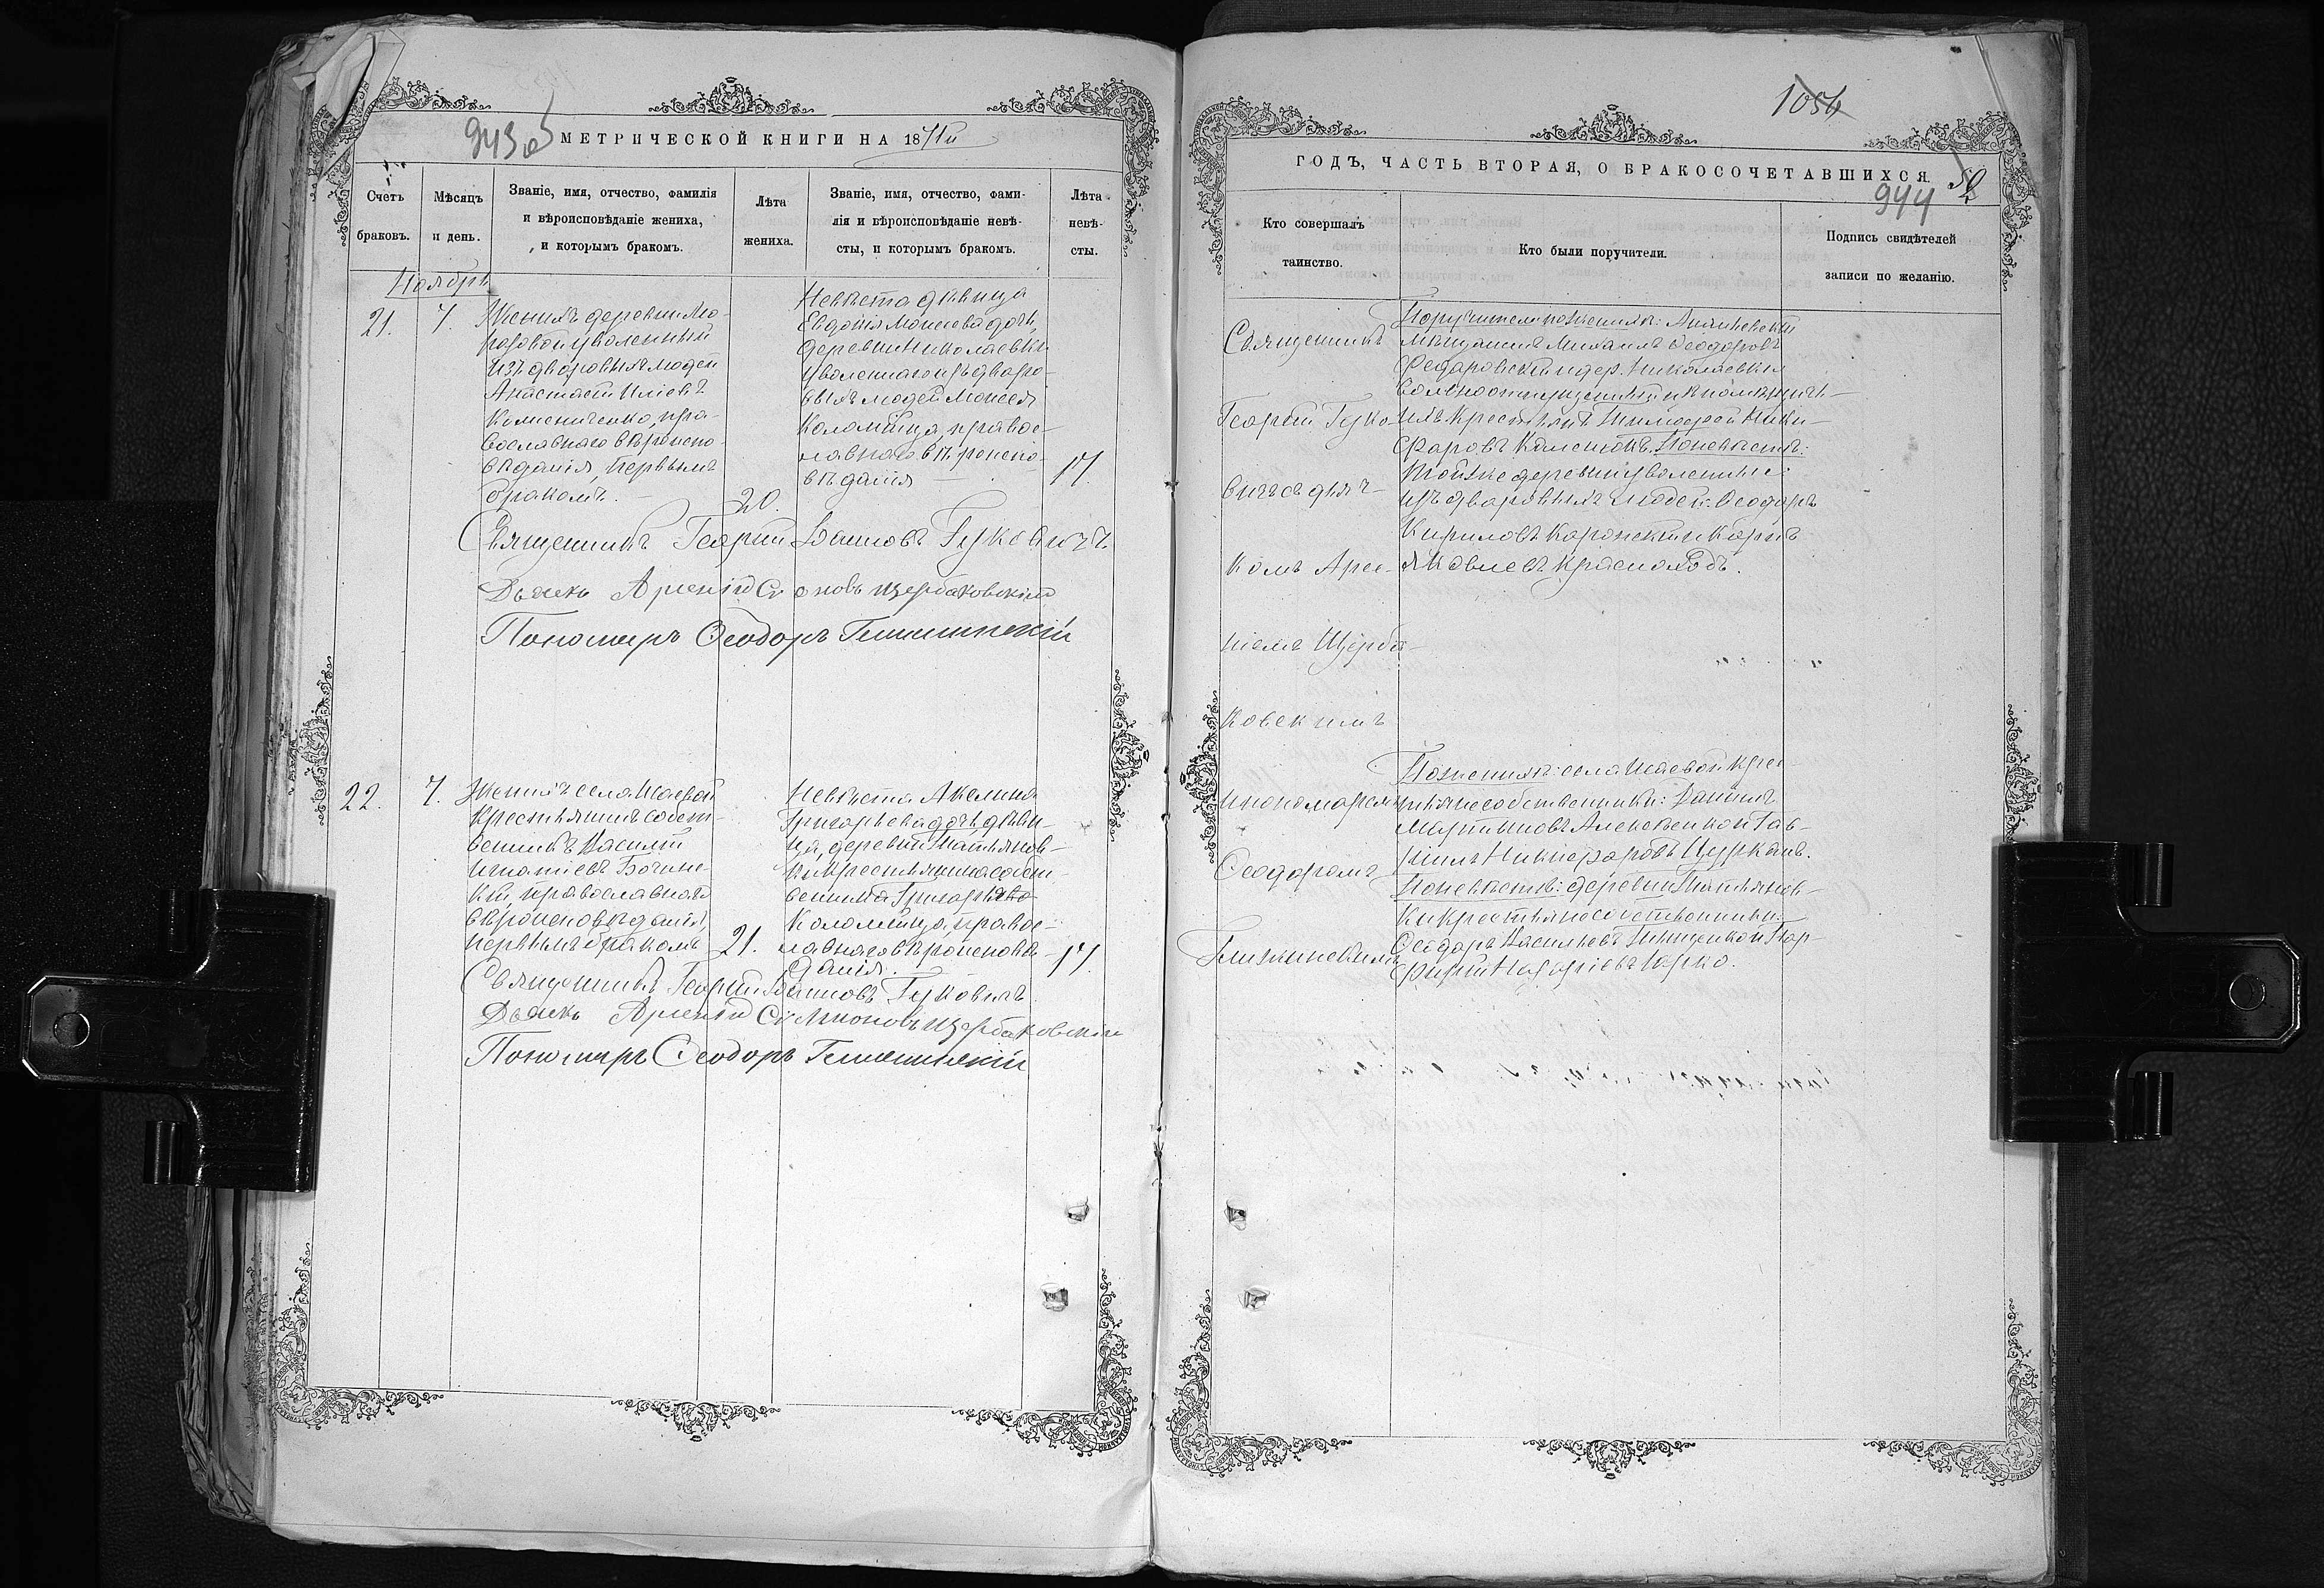 943 об
МЕТРИЧЕСКОЙ КНИГИ НА 1871й
Счетъ браковъ.
Мѣсяцъ и день.
Званіе, имя, отчество, фамилія
и вѣроисповѣданіе жениха,
и которымъ бракомъ.
Лѣта жениха.
Званіе, имя, отчество, фами-
лія и вѣроисповѣданіе невѣ-
сты, и которымъ бракомъ.
Лѣта невѣ-
сты.
Ноябрь
21.
7.
Женихъ деревни
уволенный
изъ дворовыхъ людей
Анастасій Иліевъ
пра-
вославнаго вѣроиспо-
вѣданія, первымъ
бракомъ.
20.
Невѣста дѣвица
Евдокія Моисеева дочь,
деревни Николаевки
уволеннаго изъ дворо-
выхъ людей Моисея
Коломійца, правос-
лавнаго вѣроиспо-
вѣданія
17.
Священникъ Георгій Іоанновъ Гуковичъ
Дьячекъ Арсеній Щербаковскій
Пономарь Ѳеодоръ
22.
7.
Женихъ села Исаевой
крестьянинъ собст-
венникъ Василій
Игнатіевъ
православнаго
вѣроисповѣданія,
первымъ бракомъ
21.
Невѣста Акелина
Григорьева дочь, дѣви-
ца, деревни Татьянов-
ки крестьянина собст-
венника Григорія
Коломійца, правос-
лавнаго вѣроисповѣ-
данія.
17.
Священникъ Георгій Іоанновъ Гуковичъ
Дьячекъ Арсеній Симеоновъ Щербаковскій
Пономарь Ѳеодоръ
1054
ГОДЪ, ЧАСТЬ ВТОРАЯ, О БРАКОСОЧЕТАВШИХСЯ.
944
Кто совершалъ
таинство.
Кто были поручители.
Подпись свидѣтелей
записи по желанію.
Священникъ
Георгій Гуко-
вичъ съ дьяч-
комъ Арсе-
ніемъ Щерба-
ковскимъ
и пономаремъ
Ѳеодоромъ
Поручители по женихѣ: Ананьевскій
мѣщанинъ Михаилъ Ѳеодоровъ
и дер. Николаевки
крестьянинъ Тимофей Ники-
форовъ По невѣстѣ:
тойже деревни уволенные
изъ дворовыхъ людей: Ѳеодоръ
Кириловъ и Карпъ
Яковлевъ
По женихѣ: села Исаевой крес-
тьяне собственники: Даніилъ
Мартыновъ Алексѣенко и Гав-
ріилъ Никифоровъ Цурканъ.
По невѣстѣ: деревни Татьянов-
ки крестьяне собственники:
Ѳеодоръ Васильевъ и Пор-
фирій Назаріевъ Юрко.